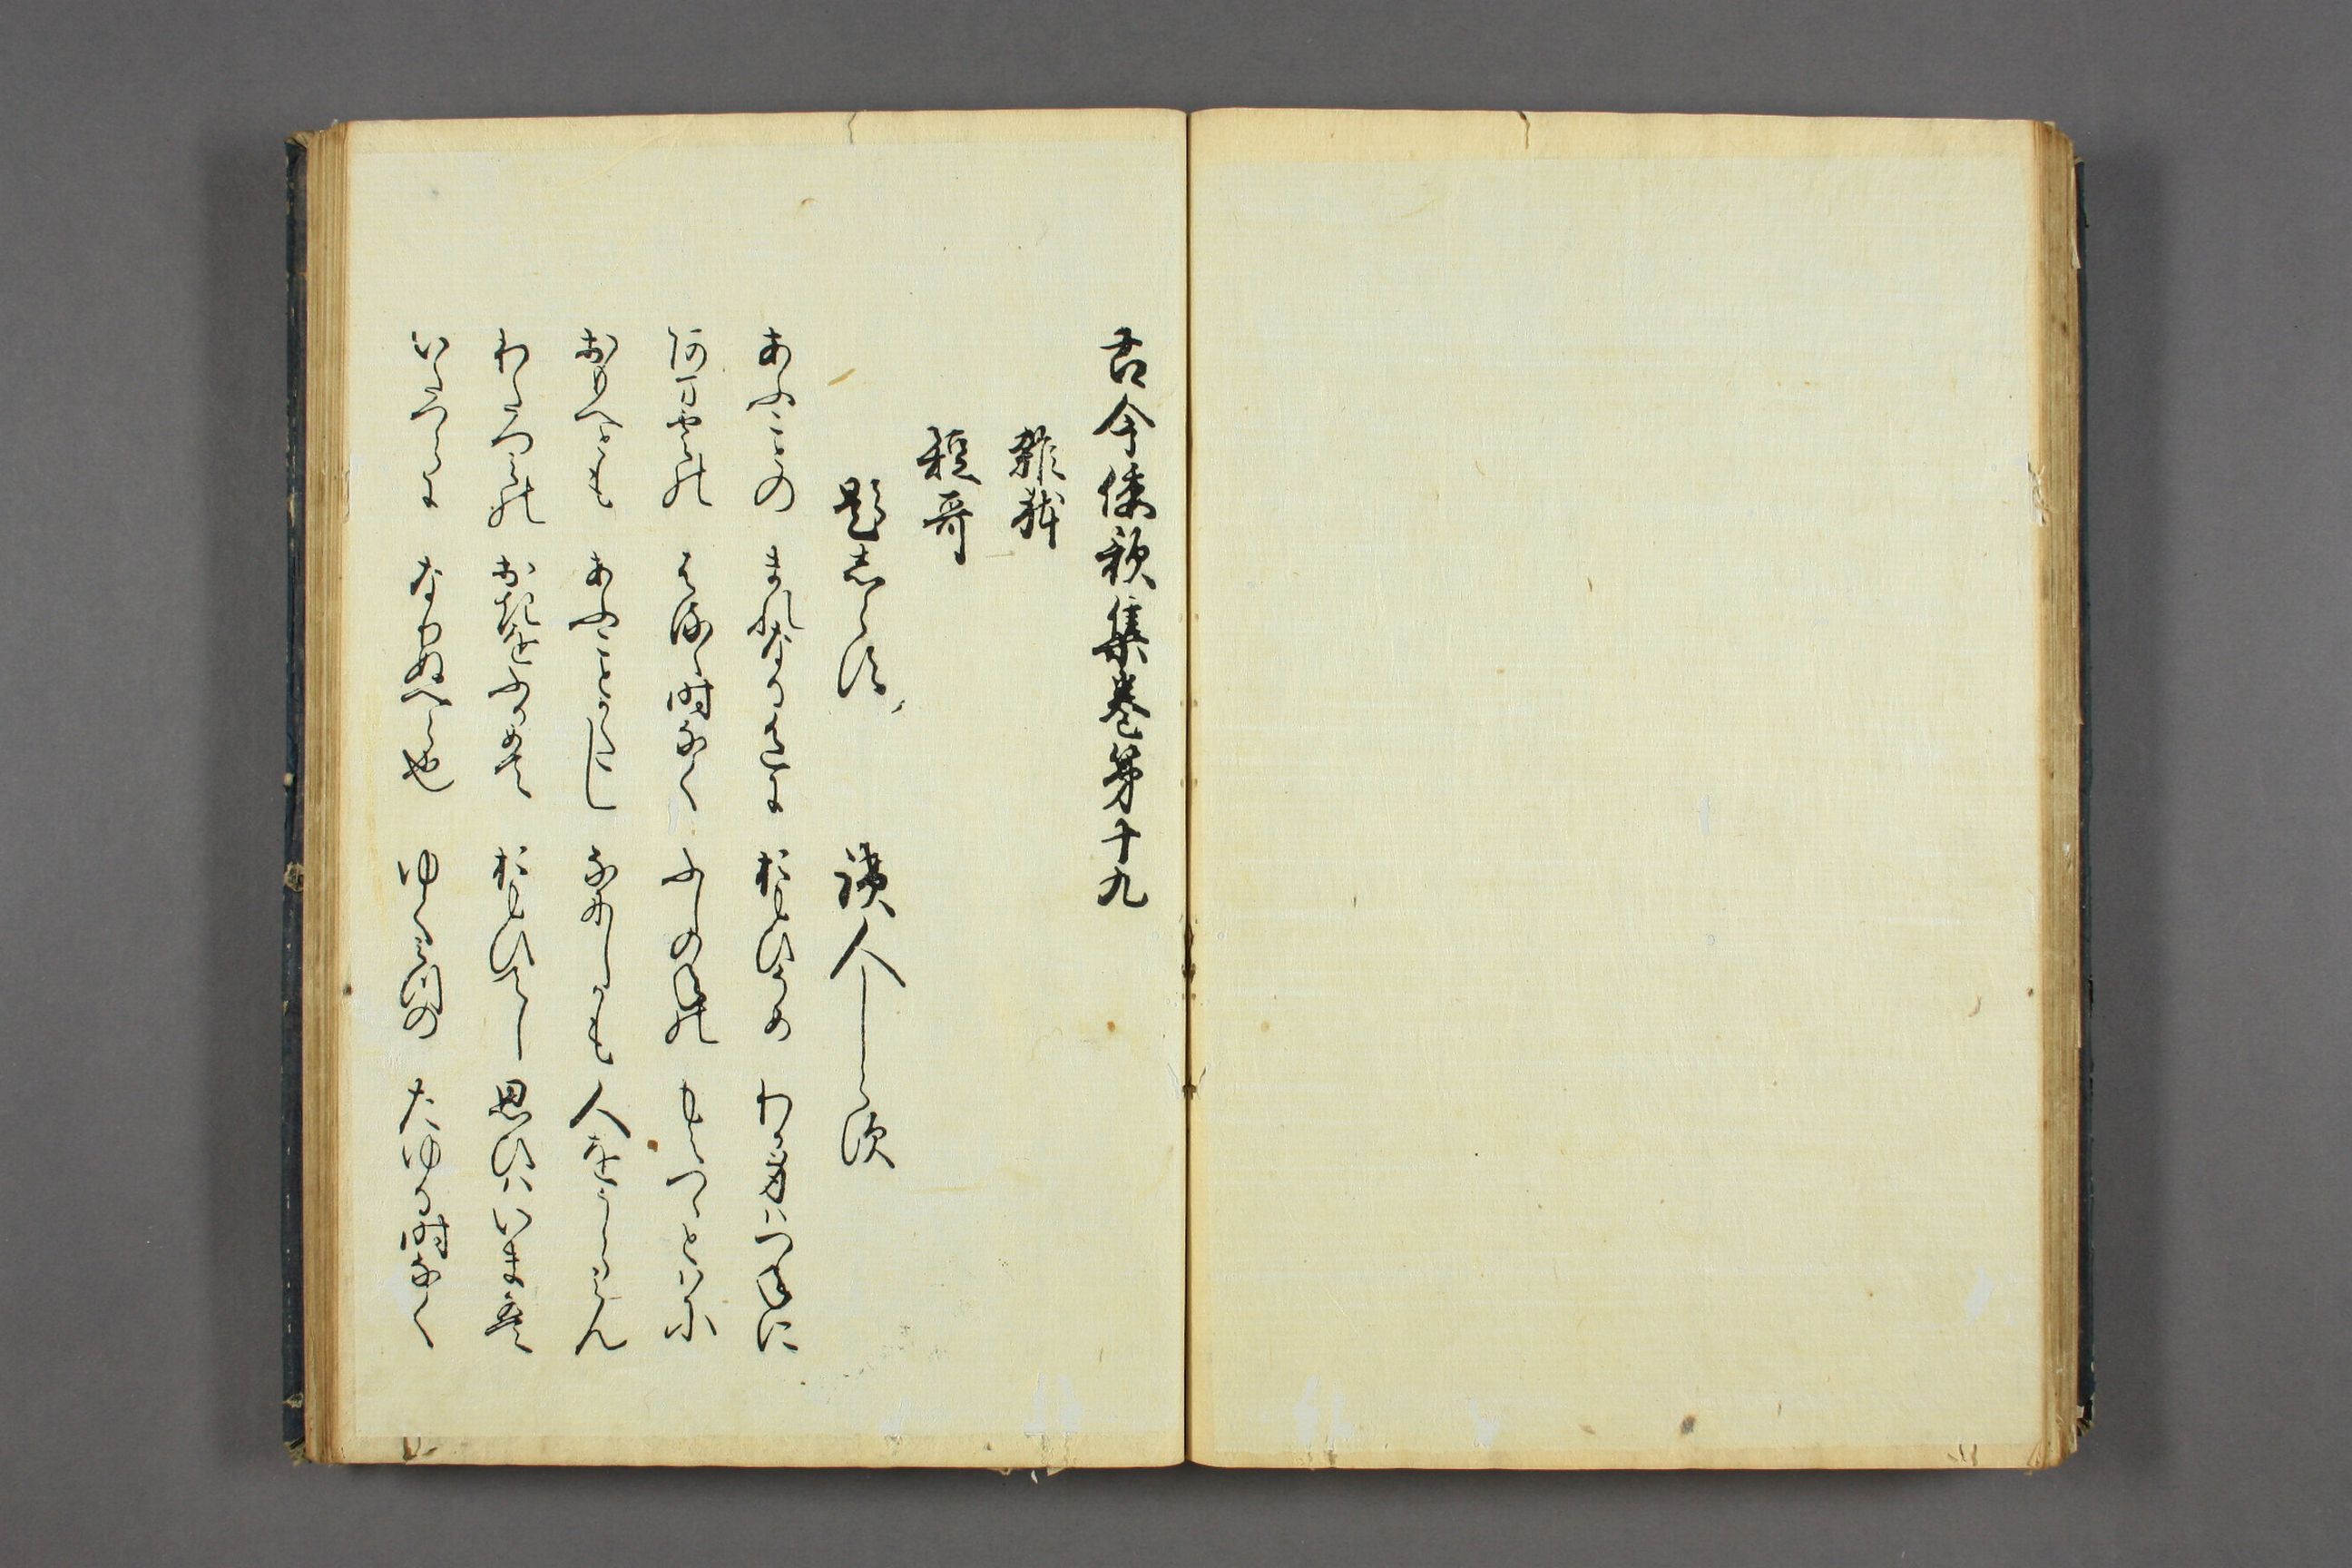 古今倭歌集巻第十九
雑躰
短哥
題志らす
読人しらす
あふことの まれなるいろに おもひそめ わか身はつねに
あまくもの はるゝ時なく ふしのねの もえつゝとはに
おもへとも あふことかたし なにしかも 人をうらみん
わたつみの おきをふかめて おもひてし 思ひはいまは
いたつらに なりぬへら也 ゆく水の たゆる時なく